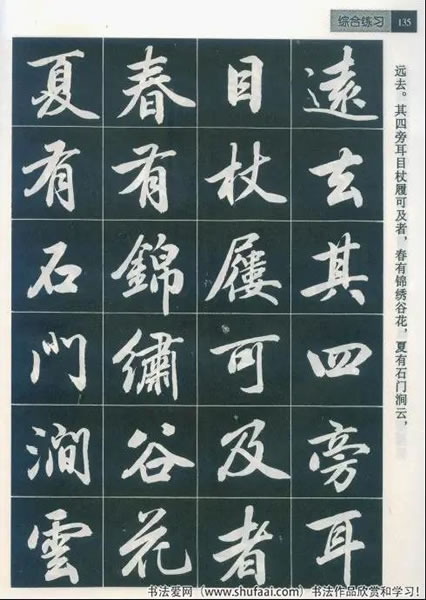 综合练习 135
遠去其四旁耳
目杖屨可及者
春有錦繡谷花
夏有石門澗雲
远去。其四旁耳目杖履可及者，春有锦绣谷花，夏有石门涧云，
书法爱网（www.shufaai.com）书法作品欣赏和学习！